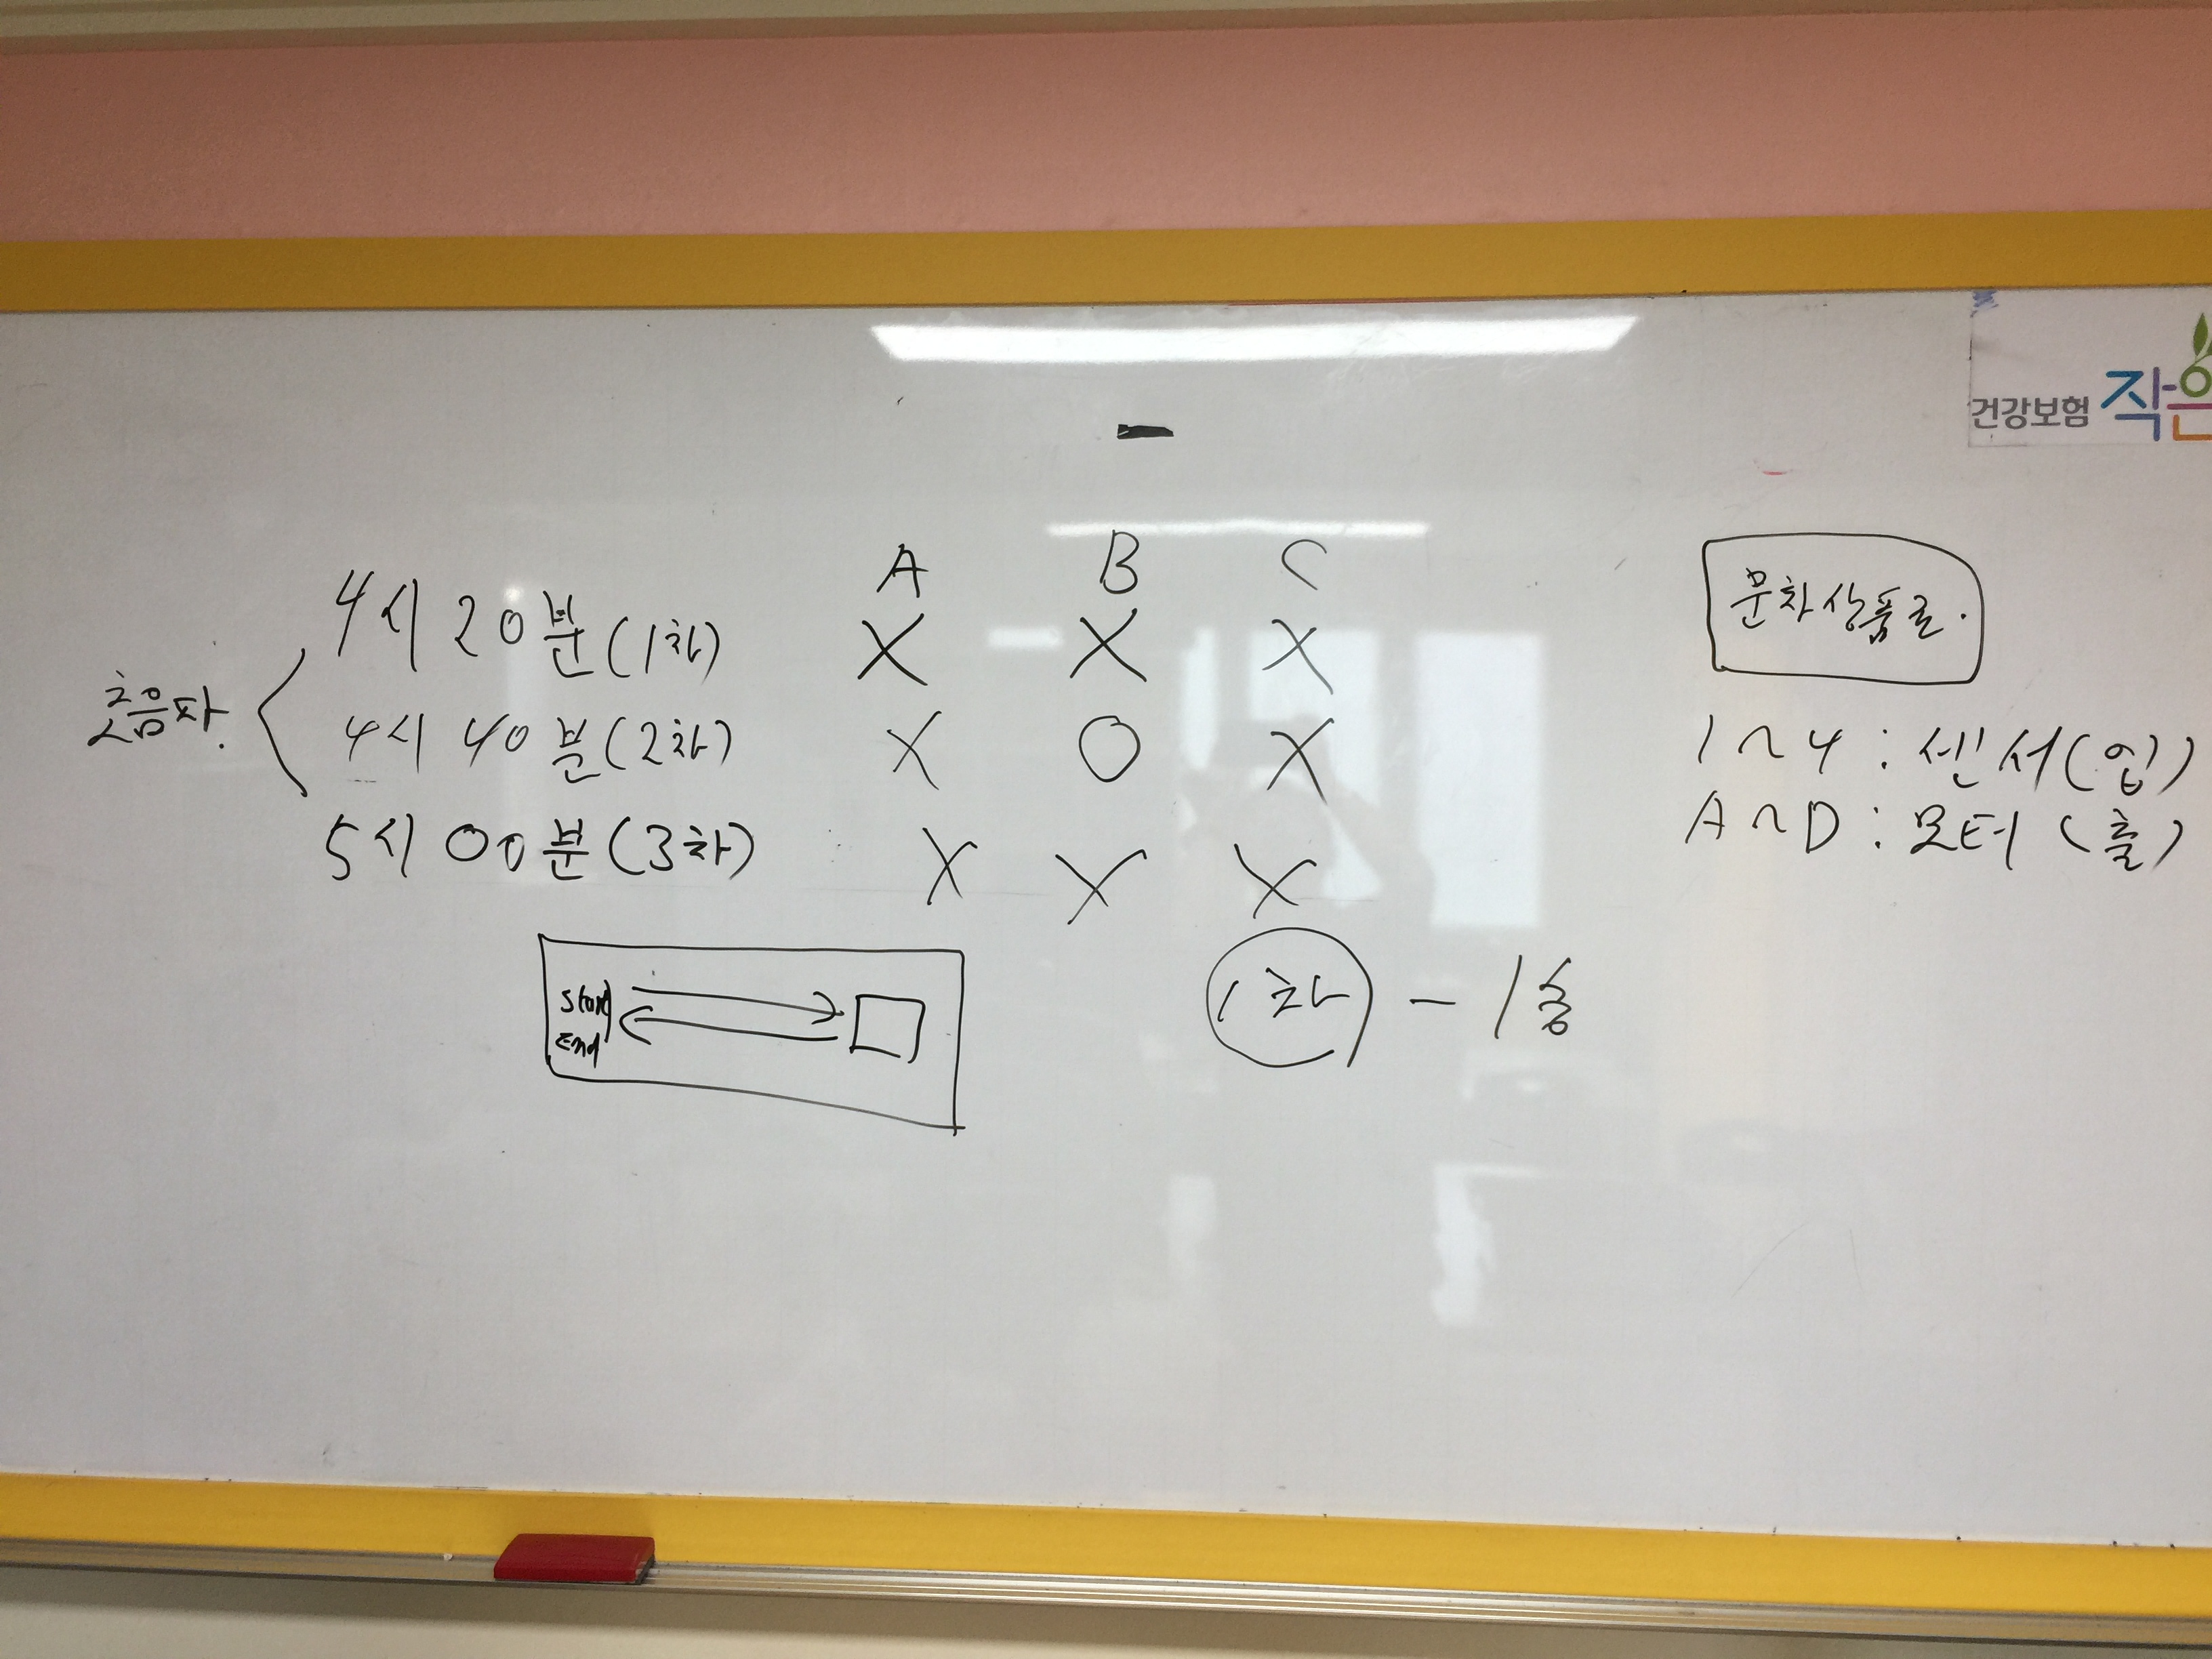 건강보험 작은
A B C
4시 20분 (1차) X X X
초음파.
4시 40분 (2차) X O X
5시 00분 (3차) X X X
문화상품권.
1~4 : 센서 (입)
A~D : 모터 (출)
Start
End
1차 - 1승